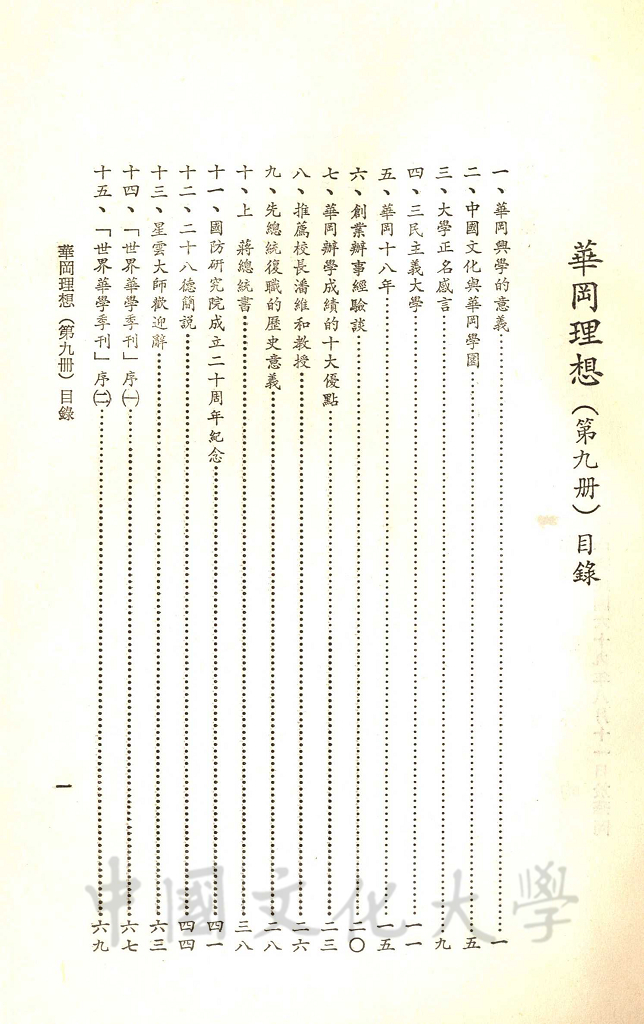 華岡理想（第九册）目錄
一、華岡興學的意義…………一
二、中國文化與華岡學園…………五
三、大學正名感言…………九
四、三民主義大學…………一一
五、華岡十八年…………一五
六、創業辦事經驗談…………二〇
七、華岡辦學成績的十大優點…………二三
八、推薦校長潘維和教授…………二六
九、先總統復職的歷史意義…………二八
十、上　蔣總統書…………三八
十一、國防研究院成立二十周年紀念…………四一
十二、二十八德簡說…………四四
十三、星雲大師歡迎辭…………六三
十四、「世界華學季刊」序㈠…………六七
十五、「世界華學季刊」序㈡…………六九
華岡理想（第九册）目錄
一
中國文化大學